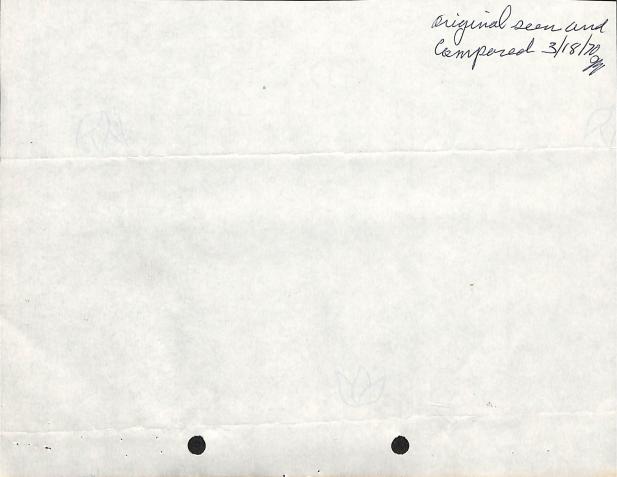 original seen and
Compared 3/18/70